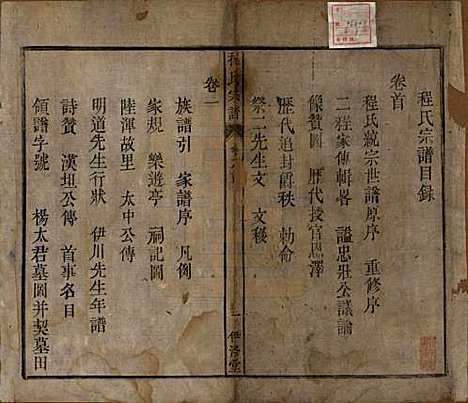 程氏宗譜目錄
卷首
程氏統宗世譜原序 重修序
二程家傳輯畧 謚忠壯公議論
像贊圖 歷代授官恩澤
歷代追封爵秩 勅命
祭二先生文 文移
程氏宗譜
伊洛堂
卷一
族譜引 家譜序 凡例
家規 樂遊亭 祠記圖
陸渾故里 太中公傳
明道先生行狀 伊川先生年譜
詩贊 漢坦公傳 首事名目
領譜字號 楊太君墓圖并契墓田